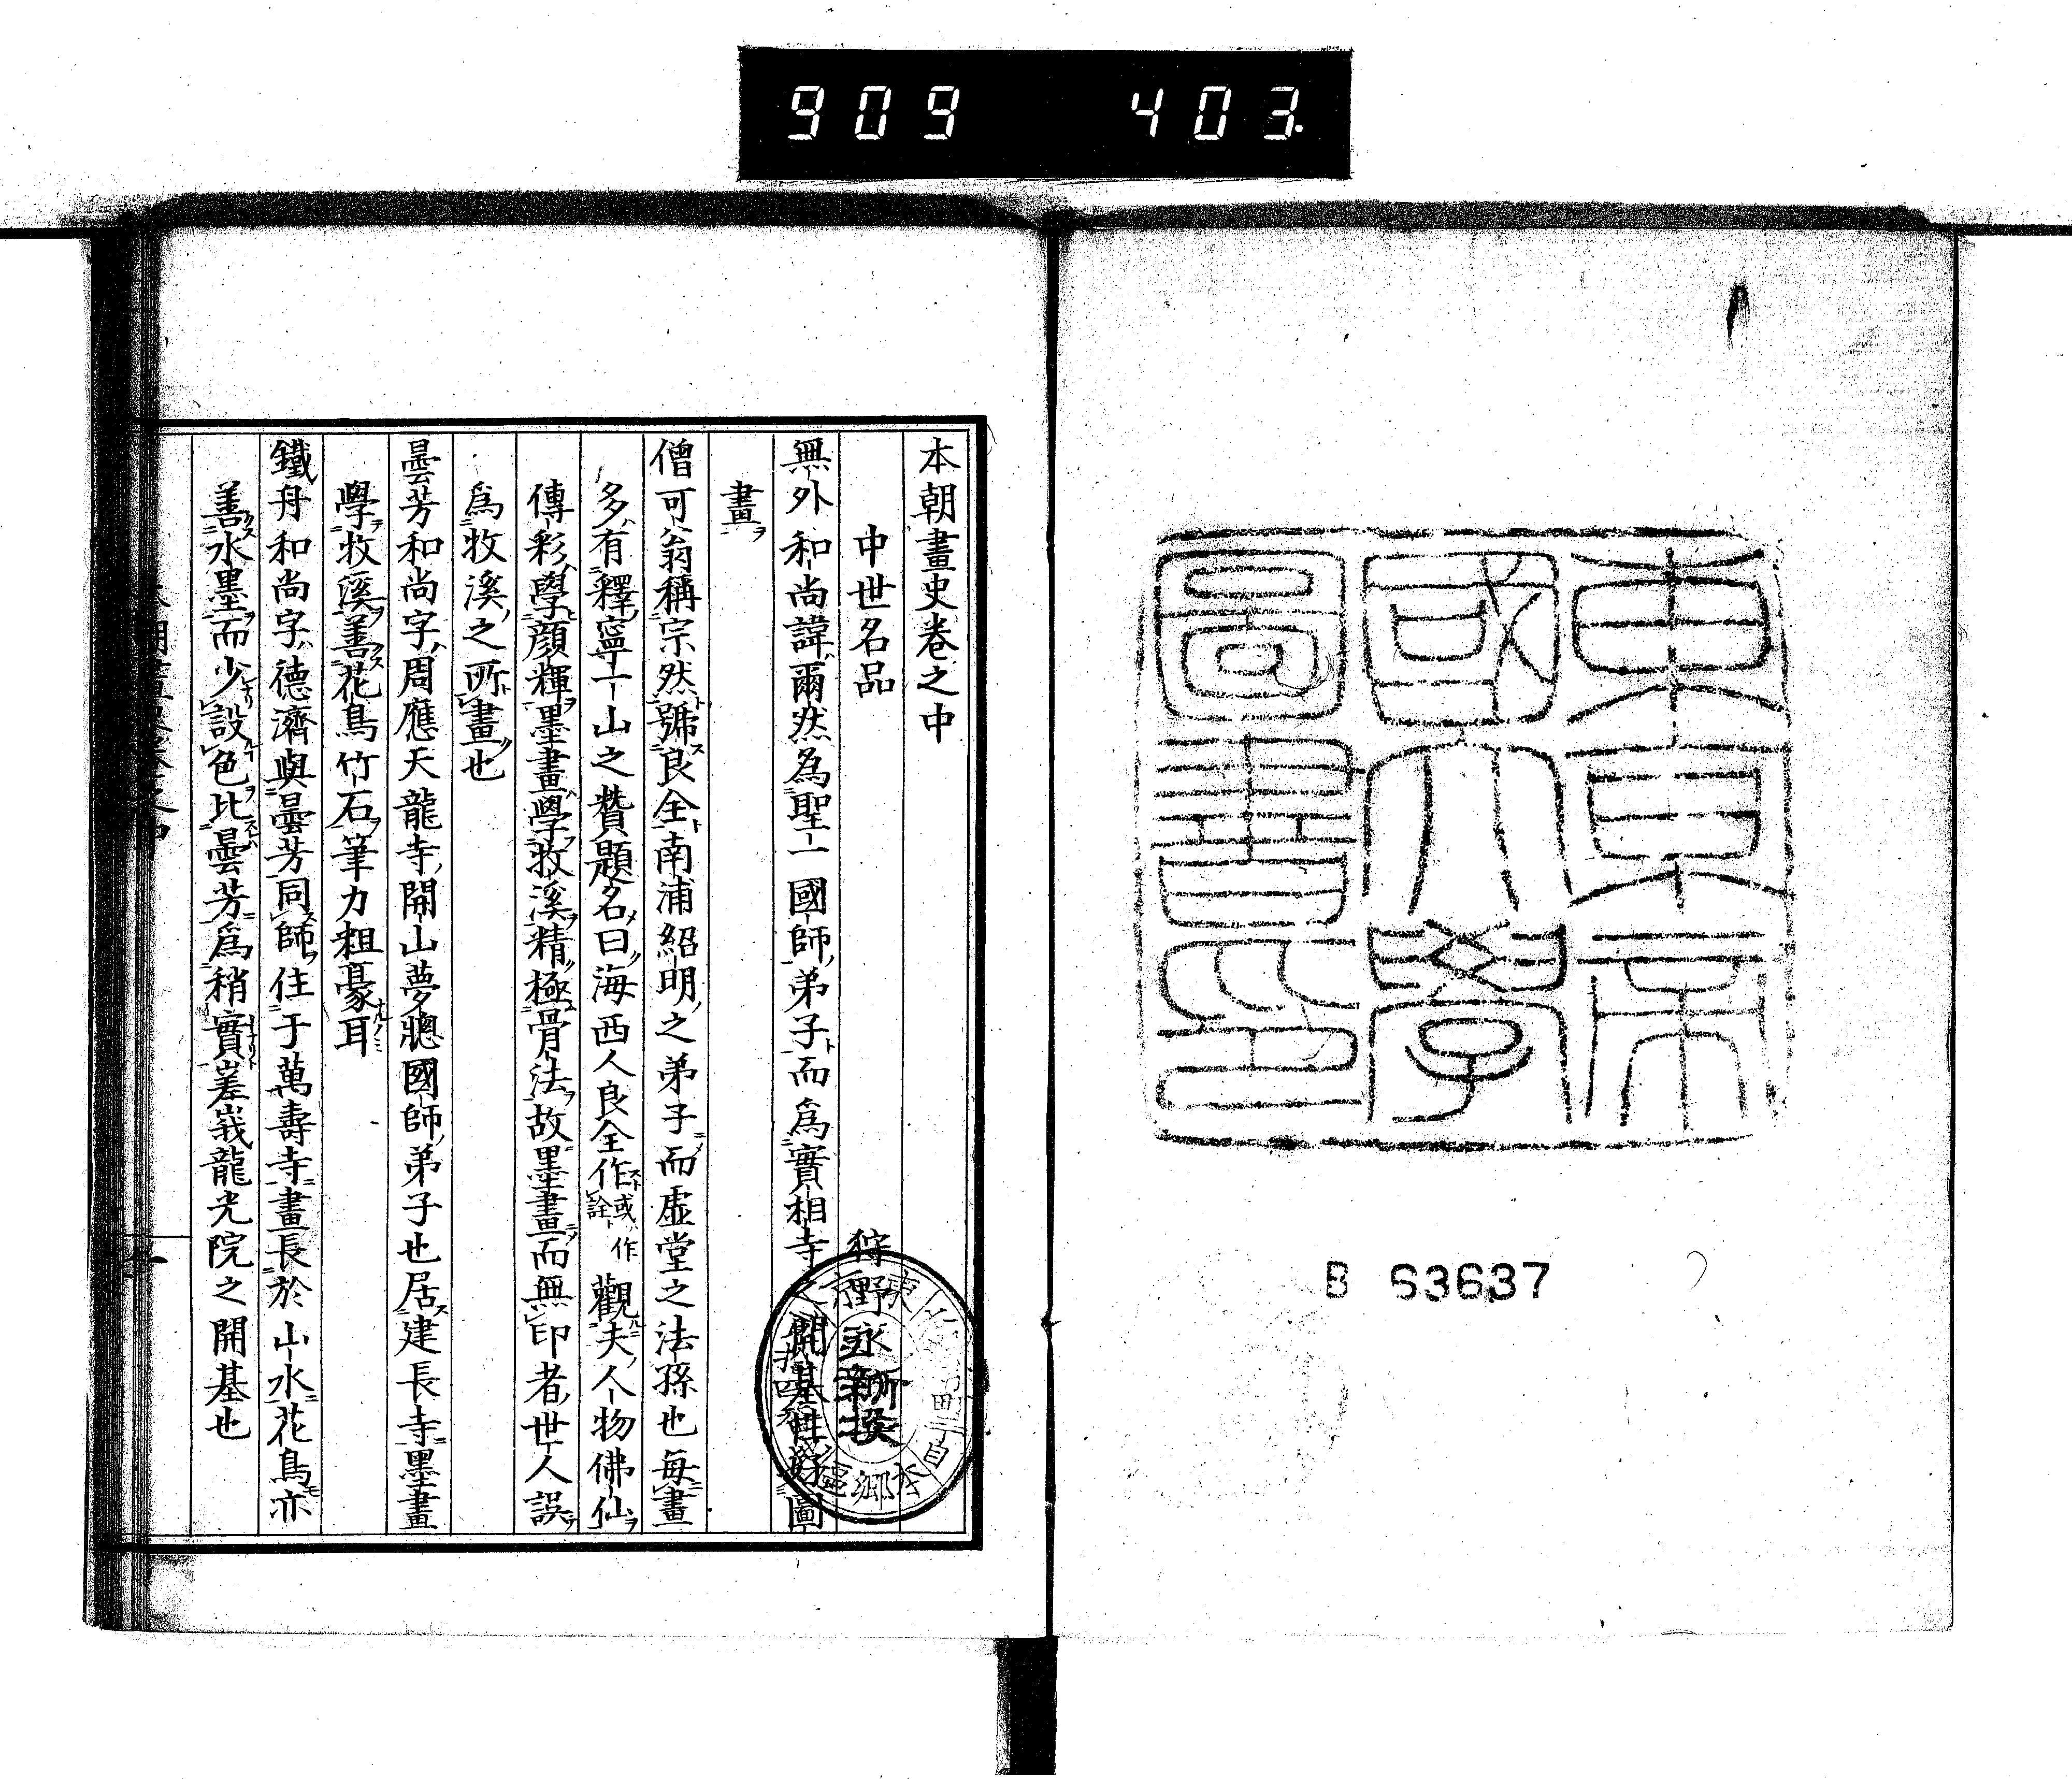 909 403.
東京帝
國大學
圖書印
B 63637
本朝畫史卷之中
中世名品 狩野永納撰
無外和尚諱爾然為聖一國師弟子而為實相寺之開基性好圖
畫
僧可翁稱宗然號良全南浦紹明之弟子而虛堂之法孫也每畫
多有釋寧一山之贊題名曰海西人良全作或作詮觀夫人物佛仙
傳彩學顏輝墨畫學牧溪精極骨法故墨畫而無印者世人誤
爲牧溪之所畫也
曇芳和尚字周應天龍寺開山夢牕國師弟子也居建長寺墨畫
學牧溪善花鳥竹石筆力粗豪耳
鐵舟和尚字德濟與曇芳同師住于萬壽寺畫長於山水花鳥亦
善水墨而少設色比曇芳爲稍實嵯峩龍光院之開基也